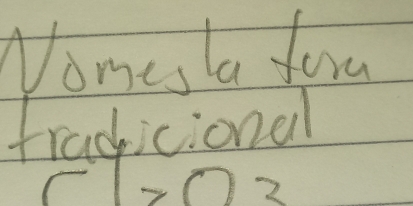 Nomesla tura
tradicional
Cl2O3